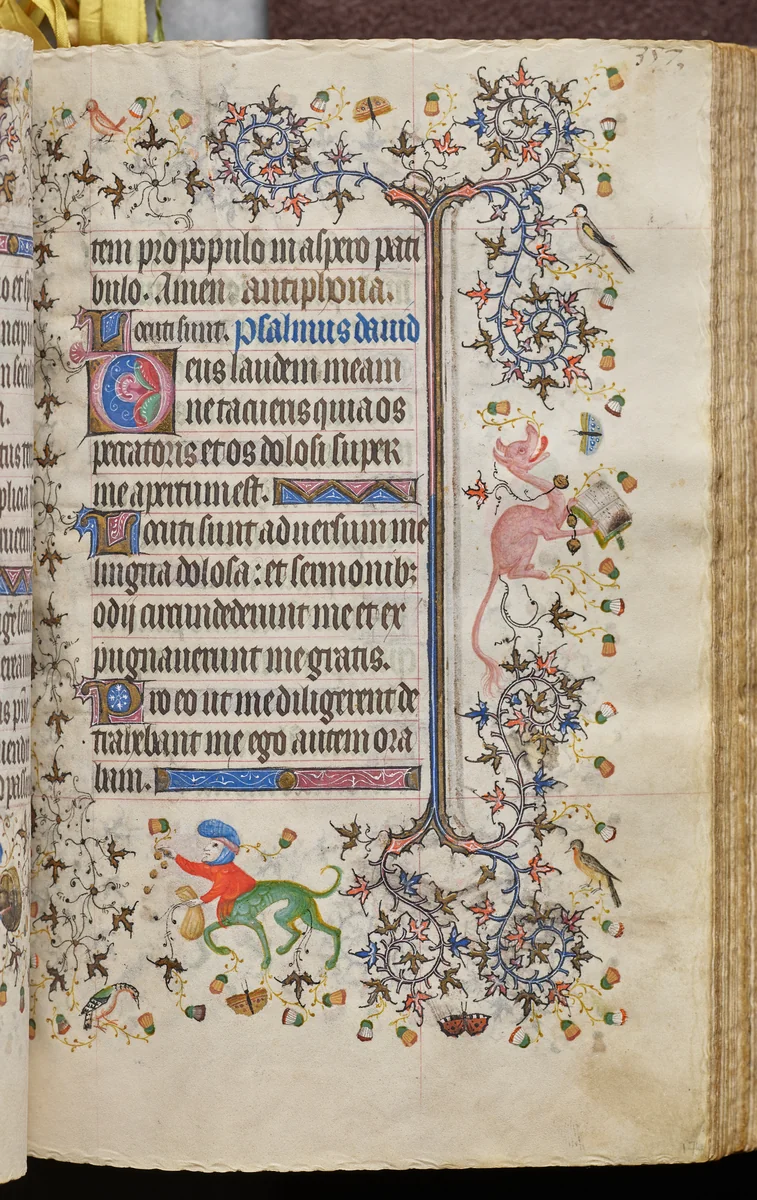 tem pro populo in aspero pati
bulo. Amen antiphona.
Locuti sunt. psalmus dauid
Deus laudem meam
ne tacueris quia os
peccatoris et os dolosi super
me apertum est.
Locuti sunt aduersum me
lingua dolosa: et sermonib;
odij circundederunt me et ex
pugnauerunt me gratis.
Pro eo ut me diligerent de
trahebant me ego autem ora
bam.